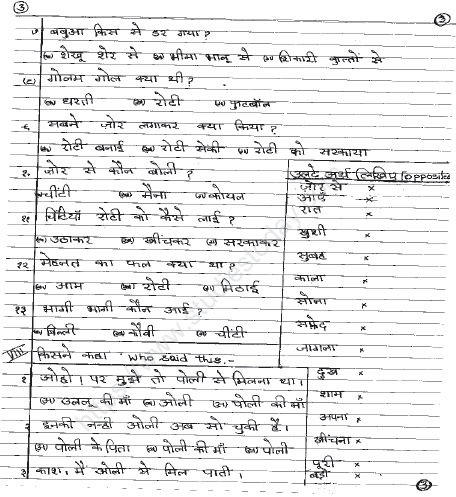 ③ ③
७ बबुआ किस से डर गया?
(अ) शेखू शेर से (ब) भीमा भालू से (स) शिकारी कुत्तों से
(८) गोलम गोल क्या थी?
(अ) धरती (ब) रोटी (स) फुटबॉल
९ सबने ज़ोर लगाकर क्या किया?
(अ) रोटी बनाई (ब) रोटी सेकी (स) रोटी को सरकाया
१० ज़ोर से कौन बोली?
(अ) चींटी (ब) मैना (स) कोयल
११ चिटियाँ रोटी को कैसे लाई?
(अ) उठाकर (ब) खींचकर (स) सरकाकर
१२ मेहनत का फल क्या था?
(अ) आम (ब) रोटी (स) मिठाई
१३ भागी भागी कौन आई?
(अ) बिल्ली (ब) कौवी (स) चींटी
VIII किसने कहा : Who said this.-
१ ओहो! पर मुझे तो पोली से मिलना था।
(अ) उल्लू की माँ (ब) ओली (स) पोली की माँ
२ इनकी नन्ही ओली अब सो चुकी है।
(अ) पोली के पिता (ब) पोली की माँ (स) पोली
३ काश, मैं ओली से मिल पाती।
उल्टे अर्थ लिखिए (opposites
ज़ोर से ×
आएँ ×
रात ×
खुशी ×
सुबह ×
काला ×
सोना ×
सफ़ेद ×
जागना ×
दुख ×
शाम ×
अपना ×
खींचना ×
पूरी ×
बड़ी ×
③